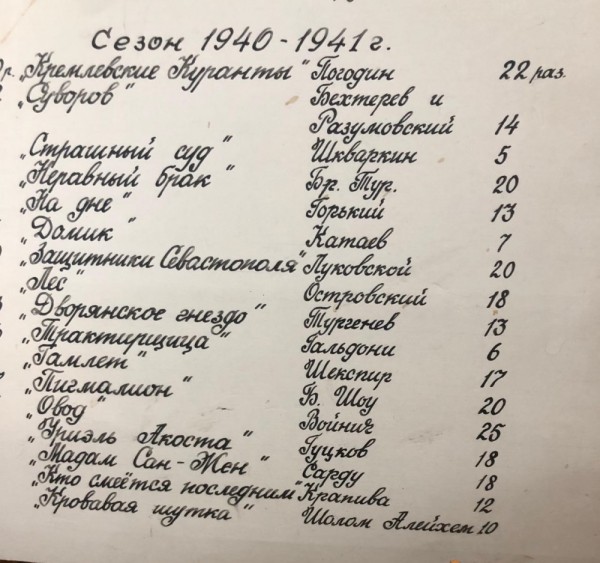 Сезон 1940-1941 г.
р. „Кремлевские Куранты“ Погодин 22 раз.
„Суворов“ Бехтерев и
Разумовский 14
„Страшный суд“ Шкваркин 5
„Неравный брак“ Бр. Тур. 20
„На дне“ Горький 13
„Домик“ Катаев 7
„Защитники Севастополя“ Луковской 20
„Лес“ Островский 18
„Дворянское гнездо“ Тургенев 13
„Трактирщица“ Гальдони 6
„Гамлет“ Шекспир 17
„Пигмалион“ Б. Шоу 20
„Овод“ Войнич 25
„Уриэль Акоста“ Гуцков 18
„Мадам Сан-Жен“ Сарду 18
„Кто смеётся последним“ Крапива 12
„Кровавая шутка“ Шолом Алейхем 10